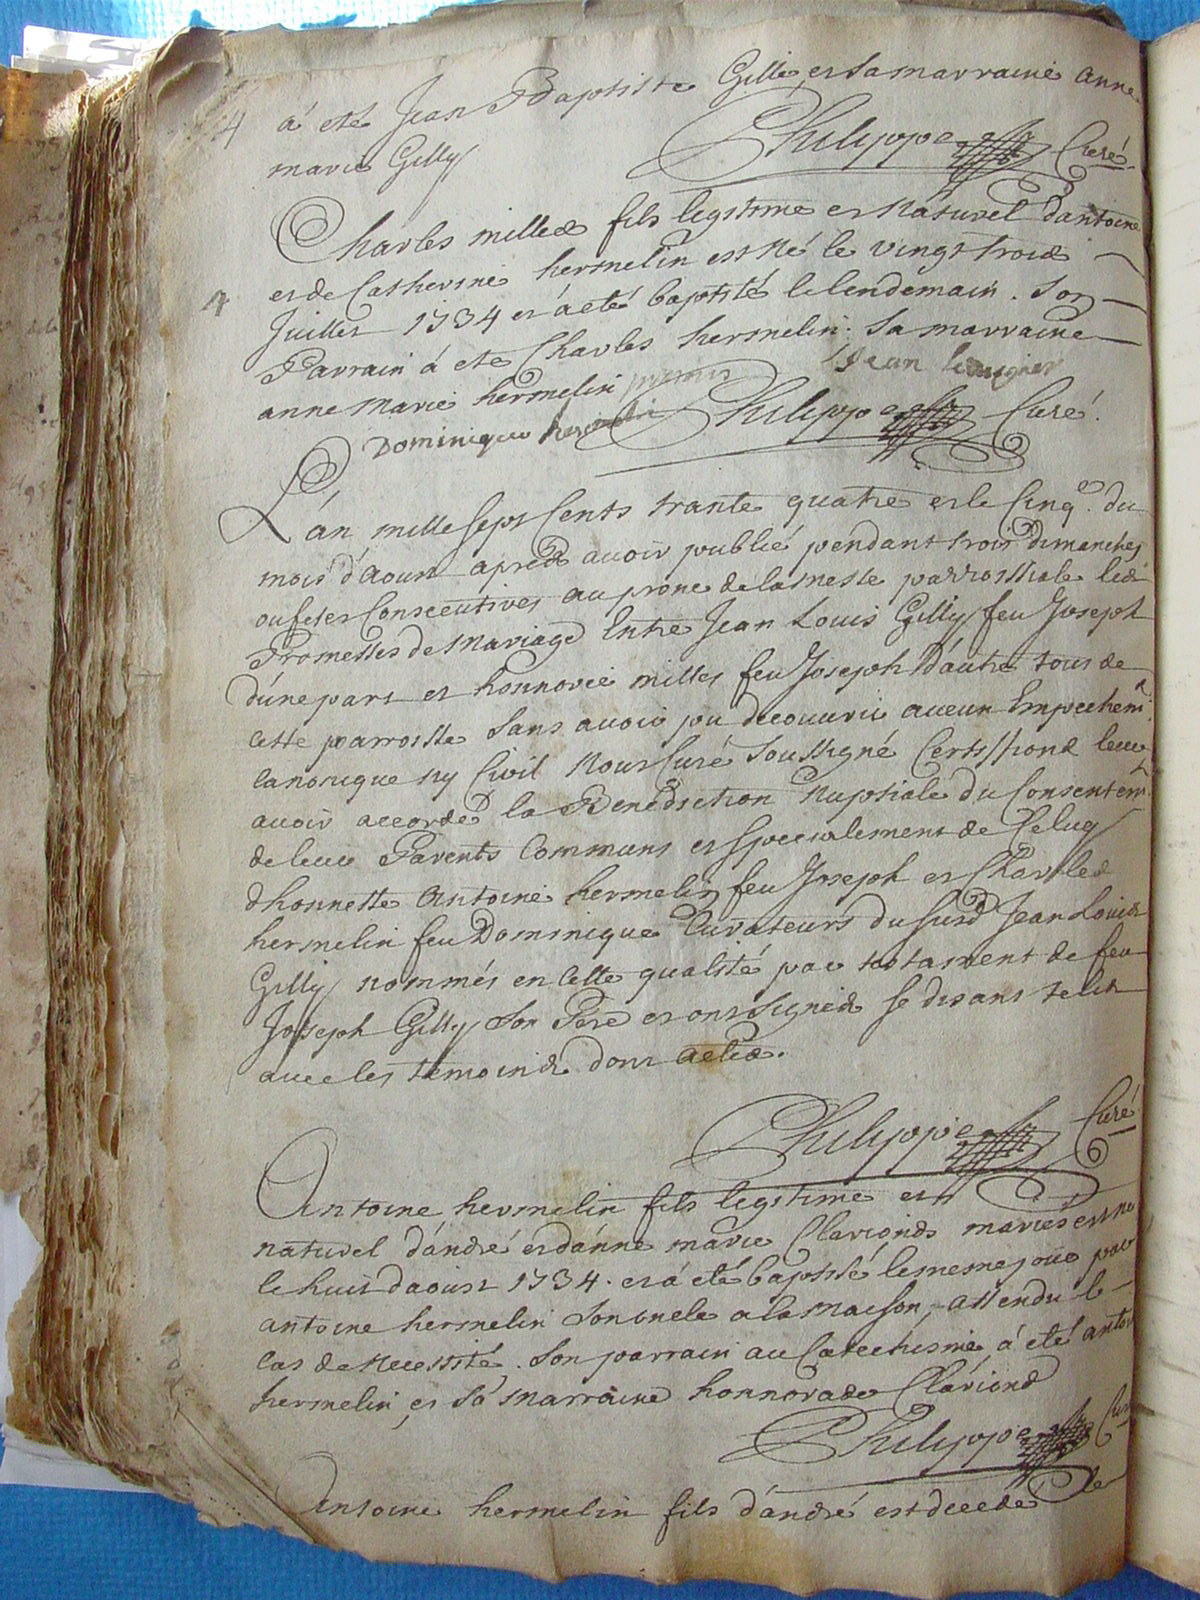 á eté Jean Baptiste Gille et sa marraine anne
marie Gilly
Philippe Curé
Charles milles fils legitime et Naturel d'antoine
et de Catherine hermelin est Né le vingt trois
Juillet 1734 et a eté baptisé le lendemain. Son
Parrain á eté Charles hermelin. Sa marraine
anne Marie hermelin
Jean
Dominique
Philippe Curé.
L'an mille sept Cents trante quatre et le Cinq.e du
mois d'Aoust apres avoir publié pendant trois dimanches
ou fetes Consecutives au prone de la messe parrossiale les
Promesses de Mariage Entre Jean Louis Gilly feu Joseph
d'une part et honnorée milles feu Joseph D'autre tous de
cette parroisse sans avoir pu decouvrir aucun Empechem.t
canonique ny Civil Nous Curé Soussigné Certiffions leur
avoir accordé la Benediction Nuptiale du Consentem.t
de leur Parents Communs et specialement de Celuy
d'honneste Antoine hermelin feu Joseph et Charles
hermelin feu Dominique Curateurs du susd Jean Louis
Gilly nommés en cette qualité par testament de feu
Joseph Gilly Son Pere et ont signés
avec les temoins dont acte.
Philippe Curé
Antoine hermelin fils legitime et
naturel d'andré et d'anne marie Clarionds mariés est né
le huit d'aoust 1734. et á eté baptisé le meme jour par
antoine hermelin Son oncle a la maison, attendu le
cas de Necessité. Son parrain au Catechisme á eté
hermelin et sa marraine honnorade Clariond
Philippe
Antoine hermelin fils d'andré est decedé le